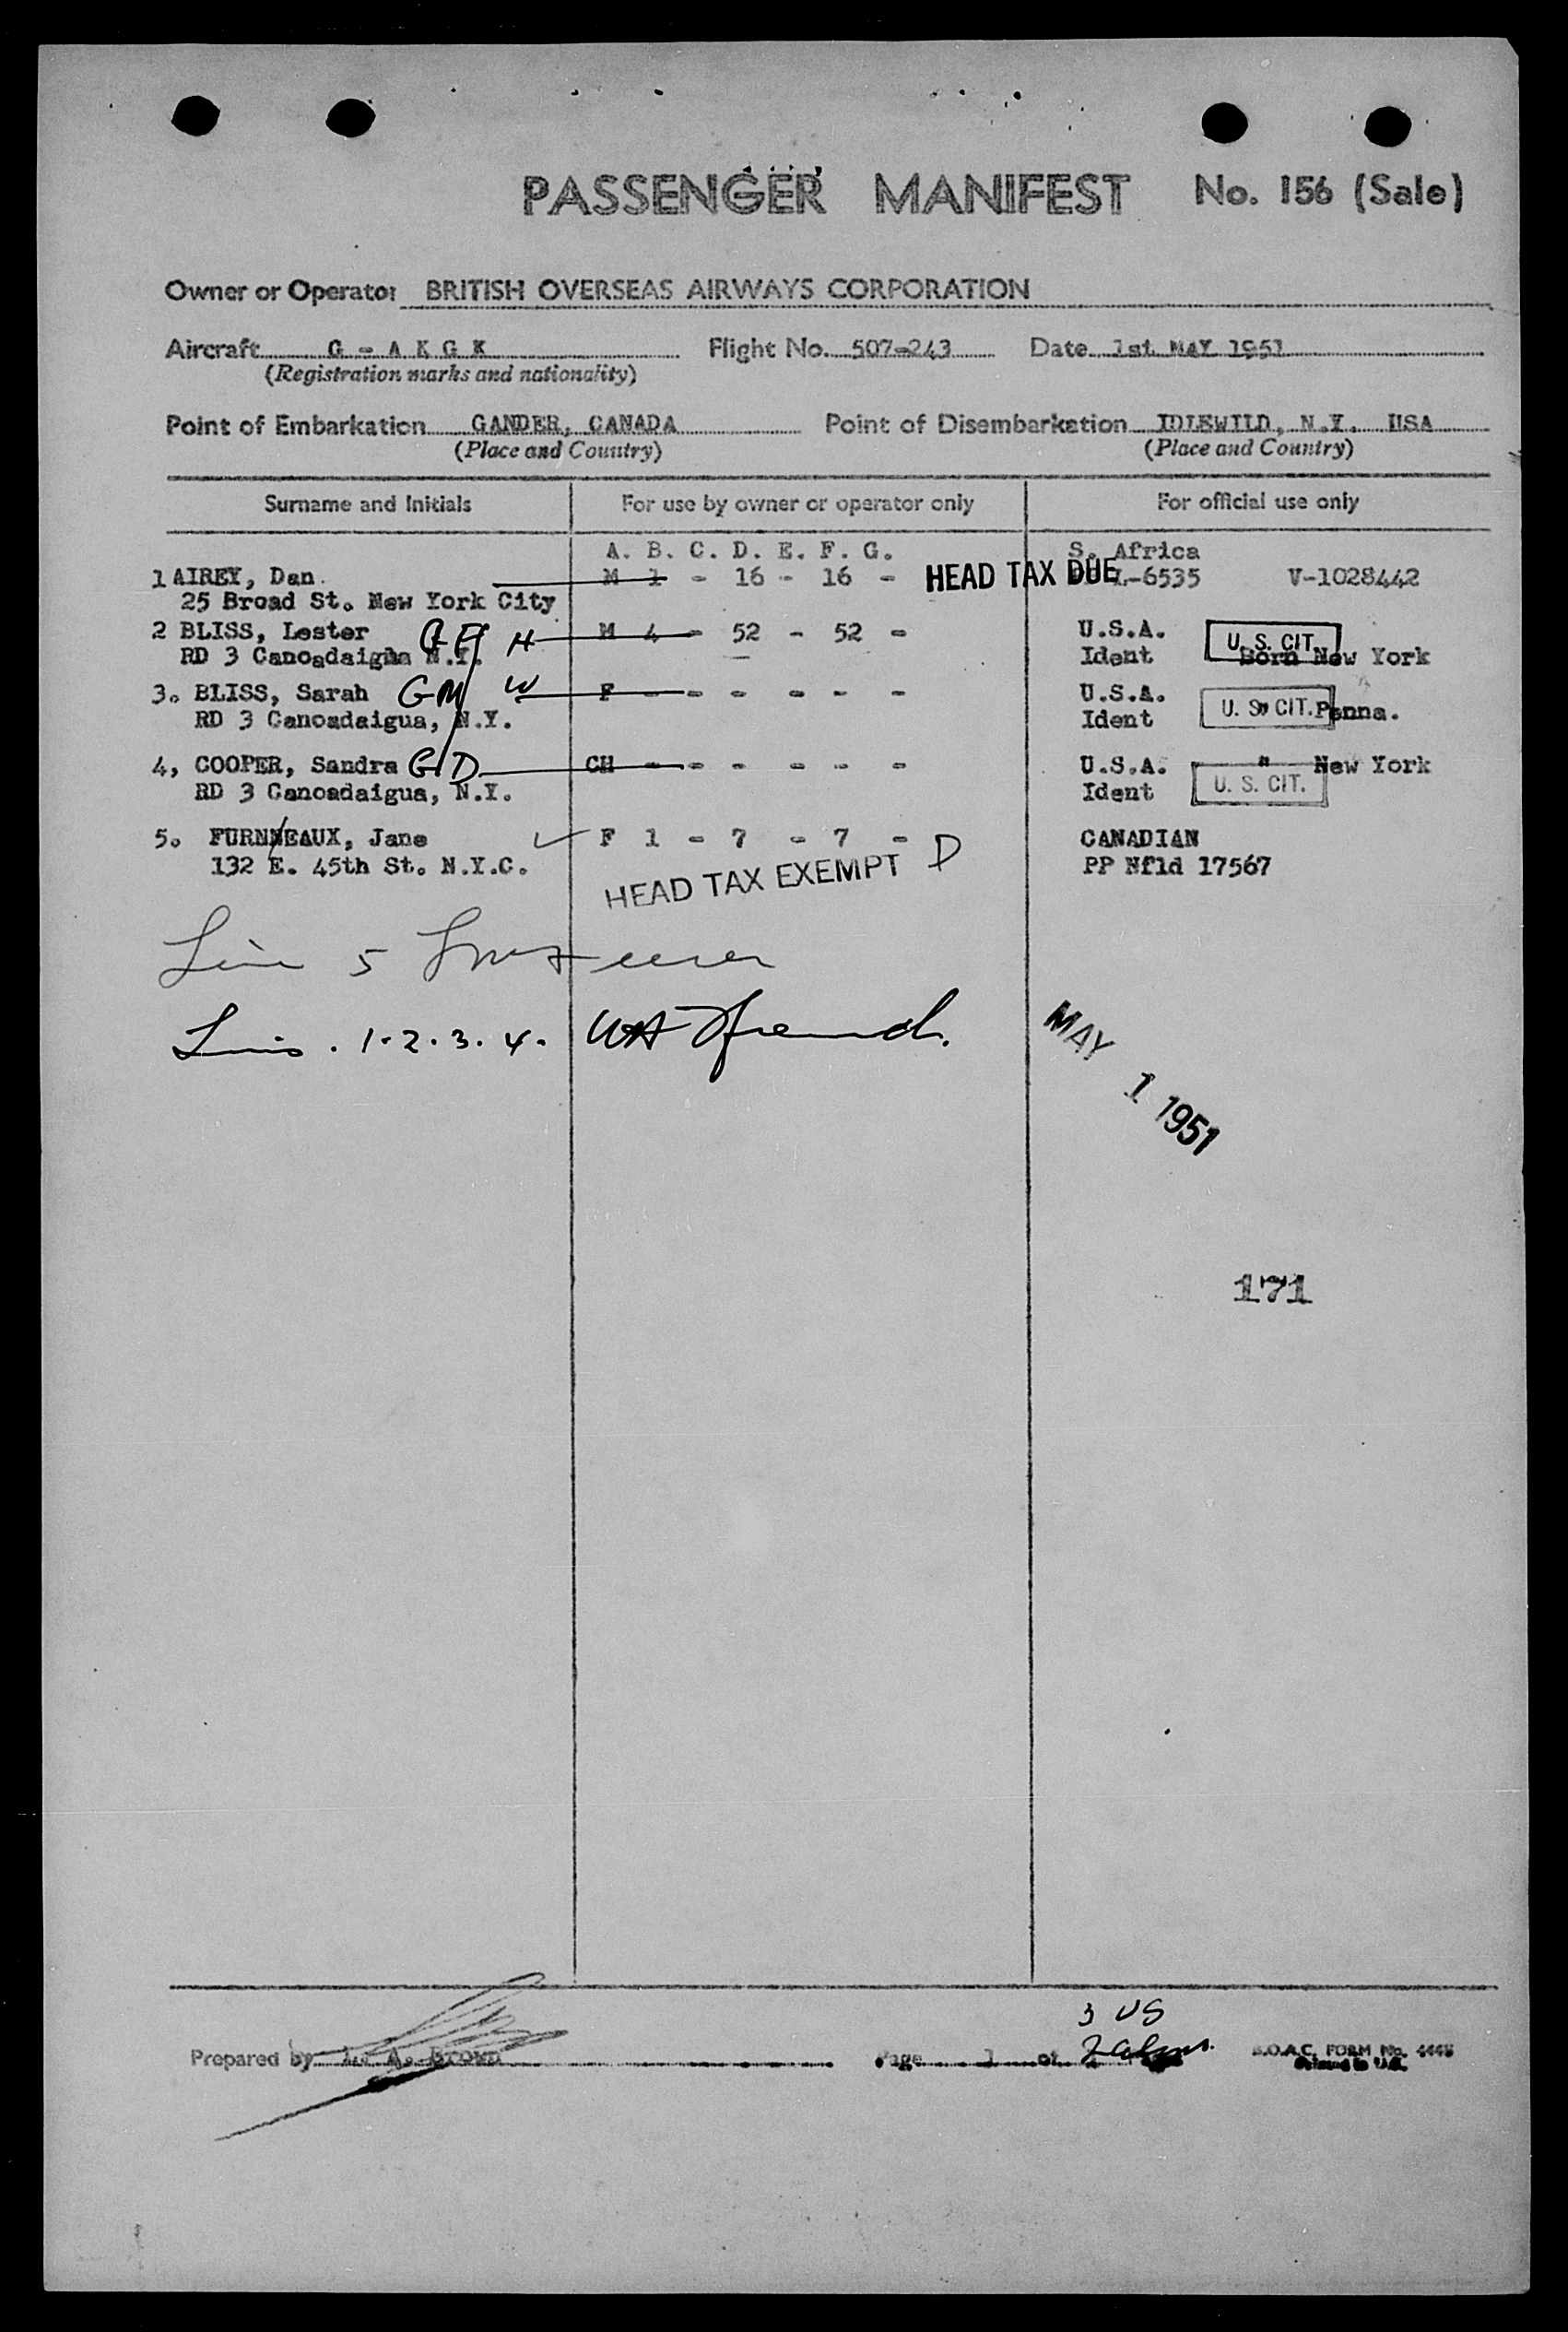 PASSENGER MANIFEST No. 156 (Sale)
Owner or Operator BRITISH OVERSEAS AIRWAYS CORPORATION
Aircraft G - A K G K Flight No. 507-243 Date 1st MAY 1951
(Registration marks and nationality)
Point of Embarkation GANDER, CANADA Point of Disembarkation IDLEWILD, N.Y. USA
(Place and Country) (Place and Country)
Surname and Initials For use by owner or operator only For official use only
A. B. C. D. E. F. G. S. Africa
1 AIREY, Dan. M 1 - 16 - 16 - HEAD TAX DUE L-6535 V-1028442
25 Broad St. New York City
2 BLISS, Lester H M 4 - 52 - 52 - U.S.A. U. S. CIT.
RD 3 Canoadaigna N.Y. Ident Born New York
3. BLISS, Sarah GM W F - - - - - - U.S.A.
RD 3 Canoadaigua, N.Y. Ident U. S. CIT. " Penna.
4, COOPER, Sandra G D CH - - - - - - U.S.A. " New York
RD 3 Canoadaigua, N.Y. Ident U. S. CIT.
5. FURNNEAUX, Jane F 1 - 7 - 7 - D CANADIAN
132 E. 45th St. N.Y.C. PP Nfld 17567
HEAD TAX EXEMPT
Line 5
1-2.3.4.
MAY 1 1951
171
3 US
Prepared by Page 1 of B.O.A.C. FORM No. 4448